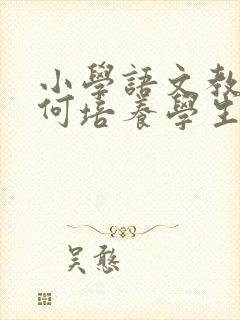 小學語文教
何培養學生
吴憨